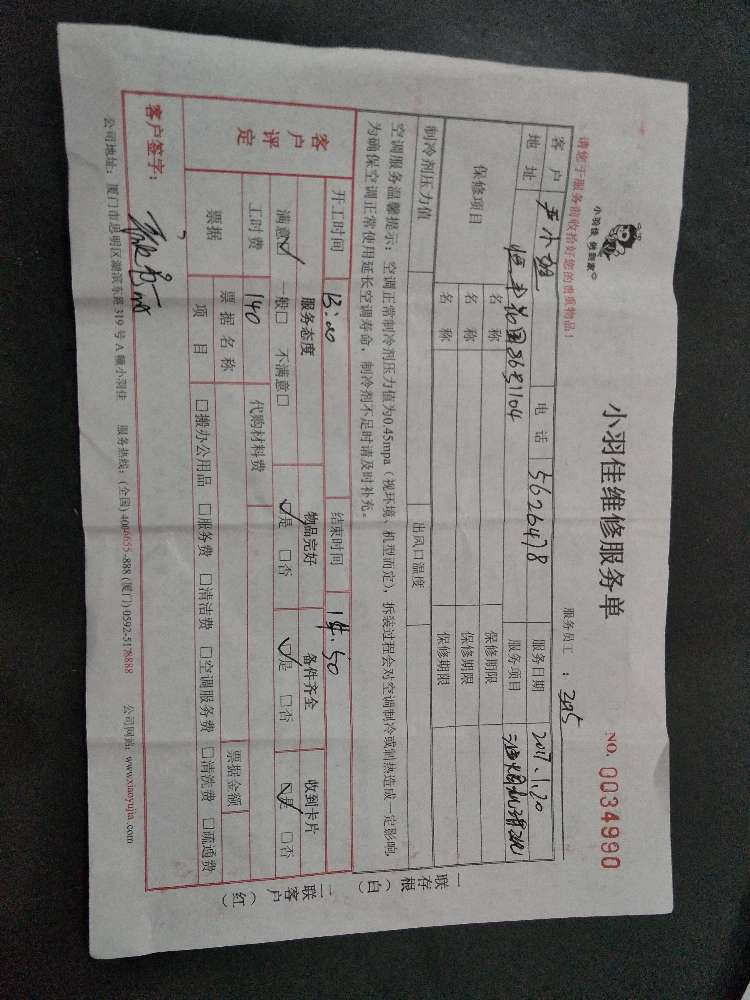 小羽佳 您到家
小羽佳维修服务单
NO. 0034990
请您于服务前收拾好您的贵重物品！
服务员工：295
客户 尹小姐 电话 5626478 服务日期 2017.1.20
地址 花园36号1104 服务项目
保修项目 名称 保修期限
名称 保修期限
名称 保修期限
制冷剂压力值 出风口温度
空调服务温馨提示：空调正常制冷剂压力值为0.45mpa（视环境、机型而定），拆装过程会对空调制冷或制热造成一定影响，
为确保空调正常使用延长空调寿命，制冷剂不足时请及时补充。
客户评定 开工时间 13:00 结束时间 14:50
服务态度 物品完好 备件齐全 收到卡片
满意☑ 一般□ 不满意□ ☑是 □否 ☑是 □否 ☑是 □否
工时费 140 代购材料费
票据 票据名称 票据金额
项目 □搬办公用品 □服务费 □清洁费 □空调服务费 □清洗费 □疏通费
一联存根（白） 二联客户（红）
客户签字：
公司地址：厦门市思明区湖滨东路319号A幢小羽佳 服务热线：(全国) 4006655-888 (厦门) 0592-5178888 公司网站：www.xiaoyujia.com